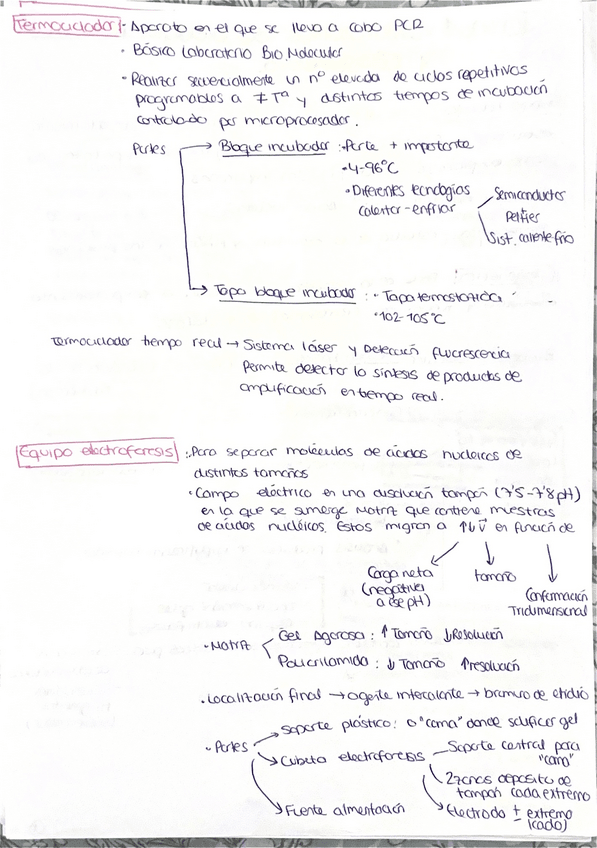 Termociclador - Aparato en el que se lleva a cabo PCR
· Básico Laboratorio Bio. Molecular
· Realizar secuencialmente un nº elevado de ciclos repetitivos
programables a ≠ Tª y distintos tiempos de incubación
controlado por microprocesador.
Partes → Bloque incubador : · Parte + importante
· 4-96ºC
· Diferentes tecnologías
calentar-enfriar
Semiconductor
Peltier
Sist. caliente frío
→ Tapa bloque incubador : · Tapa termostática
· 102-105ºC
Termociclador tiempo real → Sistema láser y Detección fluorescencia
Permite detectar la síntesis de productos de
amplificación en tiempo real.
Equipo electroforesis : · Para separar moléculas de ácidos nucleicos de
distintos tamaños
· Campo eléctrico en una disolución tampón (7'5-7'8 pH)
en la que se sumerge Matriz que contiene muestras
de ácidos nucléicos. Estos migran a ↑↓ V en función de
Carga neta
(negativa
a ese pH)
tamaño
Conformación
Tridimensional
· Matriz
Gel Agarosa : ↑ Tamaño ↓ Resolución
Policrilamida : ↓ Tamaño ↑ resolución
· Localización final → agente intercalante → bromuro de etidio
· Partes
→ Soporte plástico: o "cama" donde solidificar gel
→ Cubeta electroforesis
Soporte central para
"cama"
2 zonas deposito de
tampón cada extremo
Electrodo ± extremo
(cada)
→ Fuente alimentación